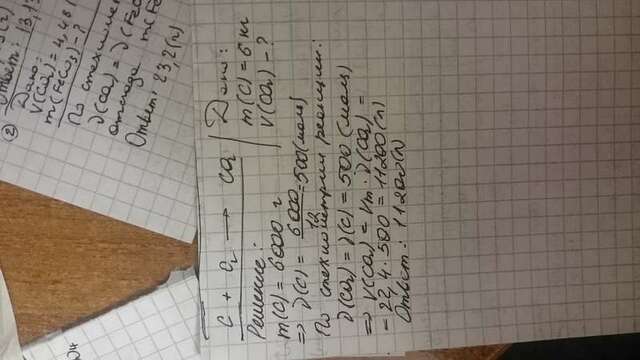 Ответ: 13,
②
Дано:
V(CO₂) = 4,48
m(FeCO₃) - ?
По
ν(CO₂) = ν(FeC
отсюда m(Fe
Ответ: 23,2(г)
C + O₂ → CO₂
Дано:
m(C) = 6 кг
V(CO₂) - ?
Решение:
m(C) = 6000 г
⇒ ν(C) = 6000/12 = 500(моль)
По стехиометрии реакции:
ν(CO₂) = ν(C) = 500 (моль)
⇒ V(CO₂) = Vm · ν(CO₂) =
= 22,4 · 500 = 11200(л)
Ответ: 11200(л)